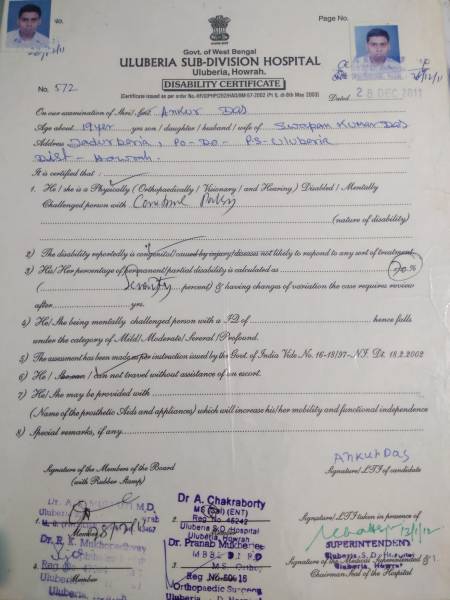 No.
Page No.
Govt. of West Bengal
ULUBERIA SUB-DIVISION HOSPITAL
Uluberia, Howrah.
No. 572
DISABILITY CERTIFICATE
Dated 28 DEC 2011
On our examination of Shri/Smt. Ankur Das
Age about 19 yrs yrs son / daughter / husband / wife of Swapan Kumar Das
Address Dadurberia, Po-Do- P.S-Uluberia
Dist- Howrah.
It is certified that :
1. He / she is a Physically (Orthopaedically / Visionary / and Hearing) Disabled / Mentally
Challenged person with Cerebral Palsy
(nature of disability)
2) The disability reportedly is congenital/caused by injury/diseases not likely to respond to any sort of treatment.
3) His/Her percentage of permanent/partial disability is calculated as 70 %
( Seventy percent) & having changes of variation the case requires review
after yrs.
4) He/She being mentally challenged person with a IQ of hence falls
under the category of Mild/Moderate/Several/Profound.
5) The assessment has been made as per instruction issued by the Govt. of India Vide No. 16-18/97-NI. Dt. 18.2.2002
6) He / She can / can not travel without assistance of an escort.
7) He/She may be provided with
(Name of the prosthetic Aids and appliances) which will increase his/her mobility and functional independence
8) Special remarks, if any
Ankur Das
Signature of the Members of the Board
(with Rubber Stamp)
Signature/LTI of candidate
Dr A. Chakraborty
MS (Cal) (ENT)
Reg No 45242
Uluberia S.D. Hospital
Uluberia, Howrah
Dr. Pranab Mukherjee
Orthopaedic Surgeon
Signature/LTI taken in presence of
12/1/12
SUPERINTENDENT
Uluberia S. D. Hospital
Uluberia, Howrah
Signature of the Medical Superintendent
Chairman Seal of the Hospital
Member